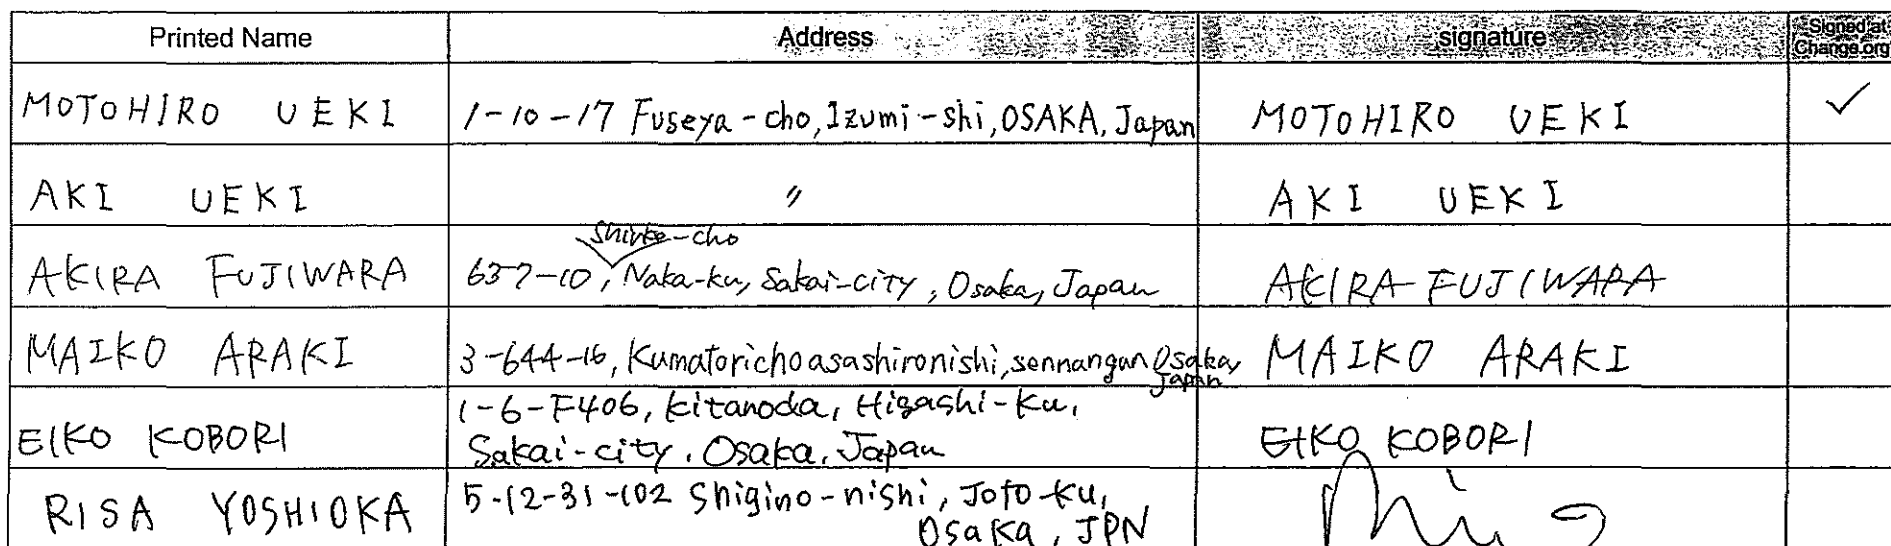 Printed Name Address signature Signed at
Change.org
MOTOHIRO UEKI 1-10-17 Fuseya-cho, Izumi-shi, OSAKA, Japan MOTOHIRO UEKI ✓
AKI UEKI 〃 AKI UEKI
-cho
AKIRA FUJIWARA 637-10, Naka-ku, Sakai-city, Osaka, Japan AKIRA FUJIWARA
MAIKO ARAKI 3-644-16, Kumatorichoasashironishi, sennangun Osaka, MAIKO ARAKI
Japan
1-6-F406, Kitanoda, Higashi-Ku,
EIKO KOBORI Sakai-city, Osaka, Japan EIKO KOBORI
5-12-31-102 Shigino-nishi, Joto-Ku,
RISA YOSHIOKA Osaka, JPN